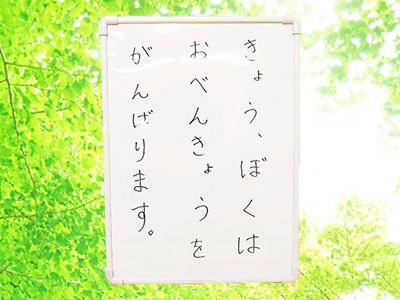 きょう、ぼくは
おべんきょうを
がんばります。